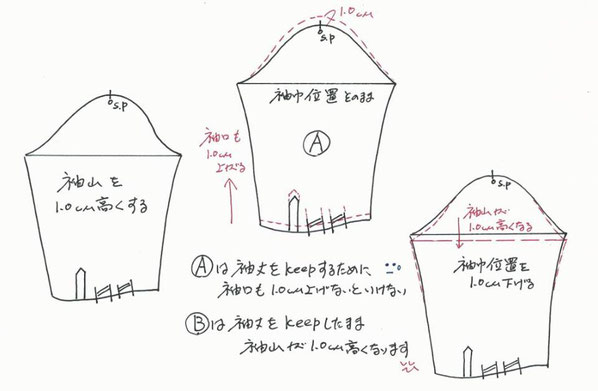 S.P
袖山を
1.0cm高くする
1.0cm
S.P
袖巾位置そのまま
A
袖口も
1.0cm
上げる
S.P
袖山が
1.0cm高くなる
袖巾位置を
1.0cm下げる
Aは袖丈をkeepするために
袖口も1.0cm上げないといけない
Bは袖丈をkeepしたまま
袖山が1.0cm高くなります